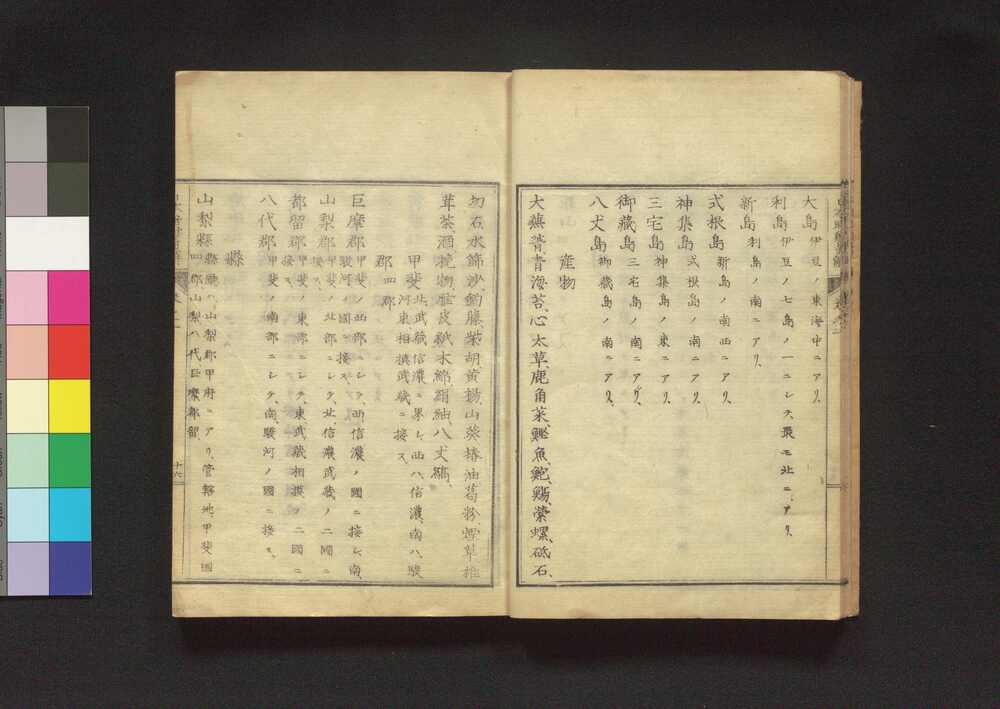 大島伊豆ノ東海中ニアリ、
利島伊豆ノ七島ノ一ニシテ、最モ北ニ、アリ、
新島利島ノ南ニアリ、
式根島新島ノ南西ニアリ、
神集島式根島ノ南ニアリ、
三宅島神集島ノ東ニアリ、
御藏島三宅島ノ南ニアリ、
八丈島御藏島ノ南ニアリ、
産物
大蕪菁、青海苔、心太草、鹿角菜、鰹魚、鮑、鰑、榮螺、砥石、
勿石、水飾沙、釣藤、柴胡、黄楊、山葵、椿油、葛粉、煙草、椎
茸、茶、酒、挽物、雁皮紙、木綿、絹紬、八丈縞、
甲斐北武藏信濃ニ界シ、西ハ、信濃、南ハ、駿
河、東相摸武藏ニ接ス、
郡四郡
巨摩郡甲斐ノ西部ニシテ、西信濃ノ國ニ接シ、南、
駿河ノ國ニ接ス、
山梨郡甲斐ノ北部ニシテ、北信濃武藏ノ二國ニ
接ス、
都留郡甲斐ノ東部ニシテ、東武藏相摸ノ二國ニ
接ス、
八代郡甲斐ノ南部ニシテ、南、駿河ノ國ニ接ス、
縣
山梨縣縣廳ハ、山梨郡甲府ニアリ、管轄地、甲斐國
四郡山梨八代巨摩都留、
十六